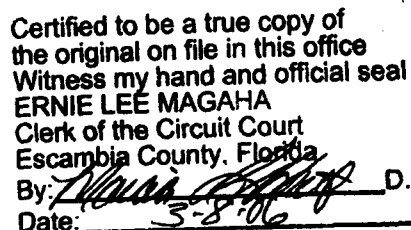 Certified to be a true copy of
the original on file in this office
Witness my hand and official seal
ERNIE LEE MAGAHA
Clerk of the Circuit Court
Escambia County, Florida
By: D.
Date: 3-8-06